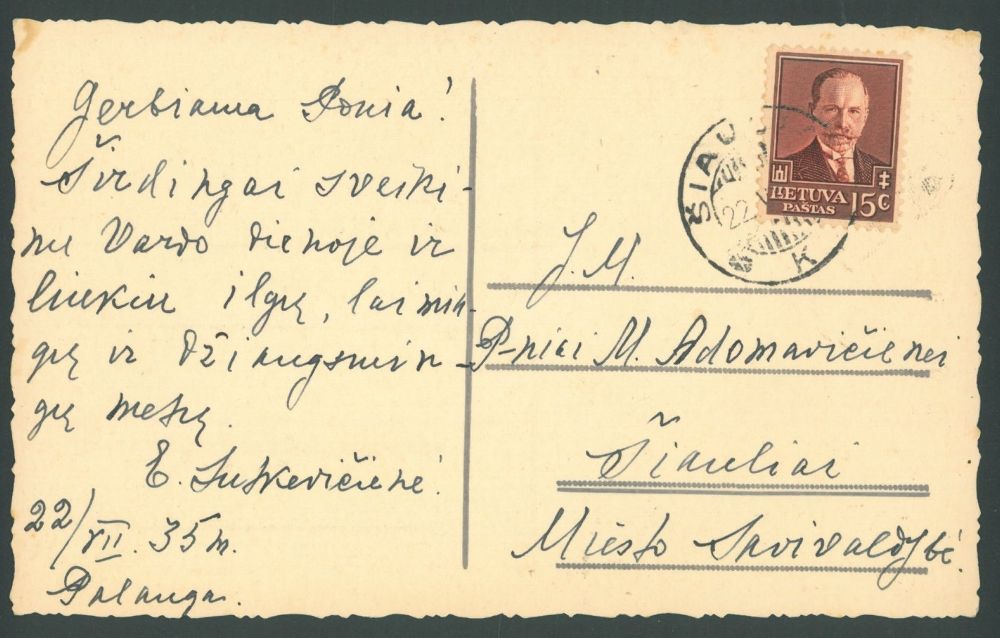 Gerbiama Ponia!
Širdingai sveiki-
nu Vardo dienoje ir
linkiu ilgų, laimin-
gų ir džiaugsmin-
gų metų.
E. Lutkevičienė.
22/VII. 35 m.
Palanga.
LIETUVA
PAŠTAS 15 C
ŠIAU
22
K
J. M.
P-niai M. Adomavičienei
Šiauliai
Miesto Savivaldybė.